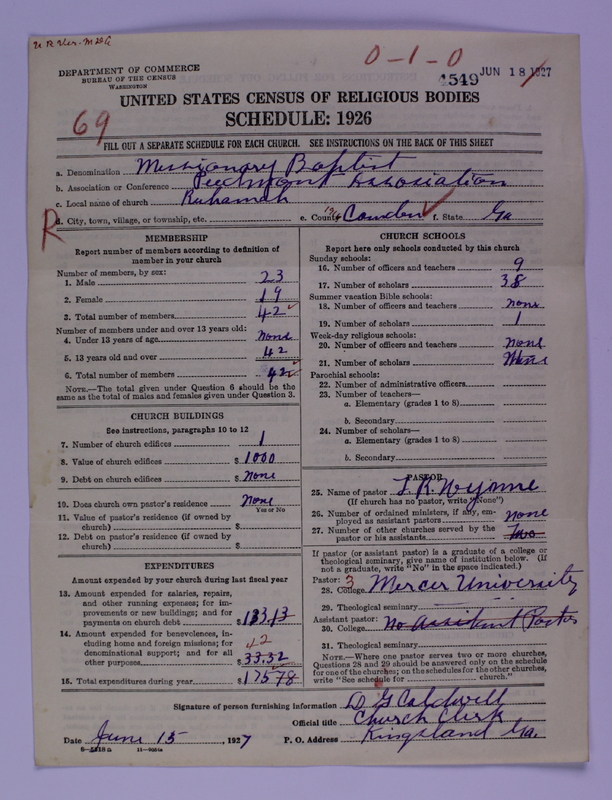 U R Ver. M D G
DEPARTMENT OF COMMERCE
BUREAU OF THE CENSUS
WASHINGTON
0-1-0
4549 JUN 18 1927
69
UNITED STATES CENSUS OF RELIGIOUS BODIES
SCHEDULE: 1926
FILL OUT A SEPARATE SCHEDULE FOR EACH CHURCH. SEE INSTRUCTIONS ON THE BACK OF THIS SHEET
a. Denomination Missionary Baptist
b. Association or Conference Piedmont Association
c. Local name of church Ruhamah
R
d. City, town, village, or township, etc. e. County Camden f. State Ga
MEMBERSHIP
Report number of members according to definition of
member in your church
Number of members, by sex:
1. Male 23
2. Female 19
3. Total number of members 42
Number of members under and over 13 years old:
4. Under 13 years of age None
5. 13 years old and over 42
6. Total number of members 42
NOTE.—The total given under Question 6 should be the
same as the total of males and females given under Question 3.
CHURCH BUILDINGS
See instructions, paragraphs 10 to 12
7. Number of church edifices 1
8. Value of church edifices $ 1000
9. Debt on church edifices $ None
10. Does church own pastor's residence None
Yes or No
11. Value of pastor's residence (if owned by
church) $
12. Debt on pastor's residence (if owned by
church) $
EXPENDITURES
Amount expended by your church during last fiscal year
13. Amount expended for salaries, repairs,
and other running expenses; for im-
provements or new buildings; and for
payments on church debt $
14. Amount expended for benevolences, in-
cluding home and foreign missions; for
denominational support; and for all
other purposes $ 33.32
15. Total expenditures during year $
CHURCH SCHOOLS
Report here only schools conducted by this church
Sunday schools:
16. Number of officers and teachers 9
17. Number of scholars 38
Summer vacation Bible schools:
18. Number of officers and teachers none
19. Number of scholars 1
Week-day religious schools:
20. Number of officers and teachers none
21. Number of scholars None
Parochial schools:
22. Number of administrative officers
23. Number of teachers—
a. Elementary (grades 1 to 8)
b. Secondary
24. Number of scholars—
a. Elementary (grades 1 to 8)
b. Secondary
PASTOR
25. Name of pastor L. R. Wynne
(If church has no pastor, write "None")
26. Number of ordained ministers, if any, em-
ployed as assistant pastors none
27. Number of other churches served by the
pastor or his assistants Two
If pastor (or assistant pastor) is a graduate of a college or
theological seminary, give name of institution below. (If
not a graduate, write "No" in the space indicated.)
Pastor: 3
28. College Mercer University
29. Theological seminary
Assistant pastor:
30. College No Assistant Pastor
31. Theological seminary
NOTE.—Where one pastor serves two or more churches,
Questions 28 and 29 should be answered only on the schedule
for one of the churches; on the schedules for the other churches,
write "See schedule for church."
Signature of person furnishing information D G Caldwell
Official title Church Clerk
Date June 15, 1927 P. O. Address Kingsland Ga.